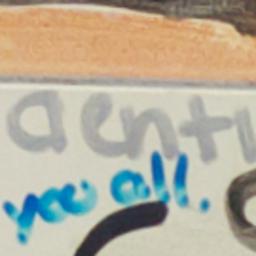 genti
you all.